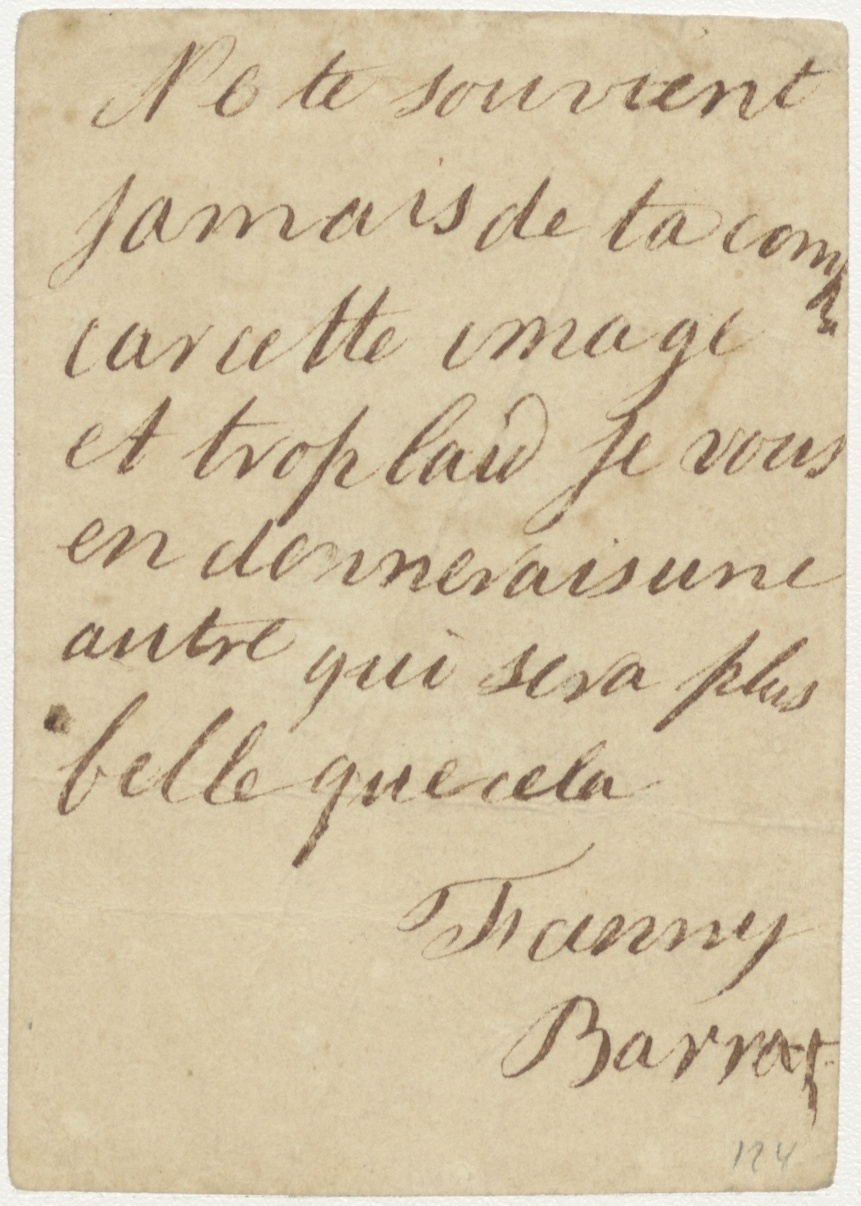 Ne te souvient
jamais de ta comp
car cette image
et trop laid je vous
en donnerais une
autre qui sera plus
belle que cela
Fanny
Barrat
124